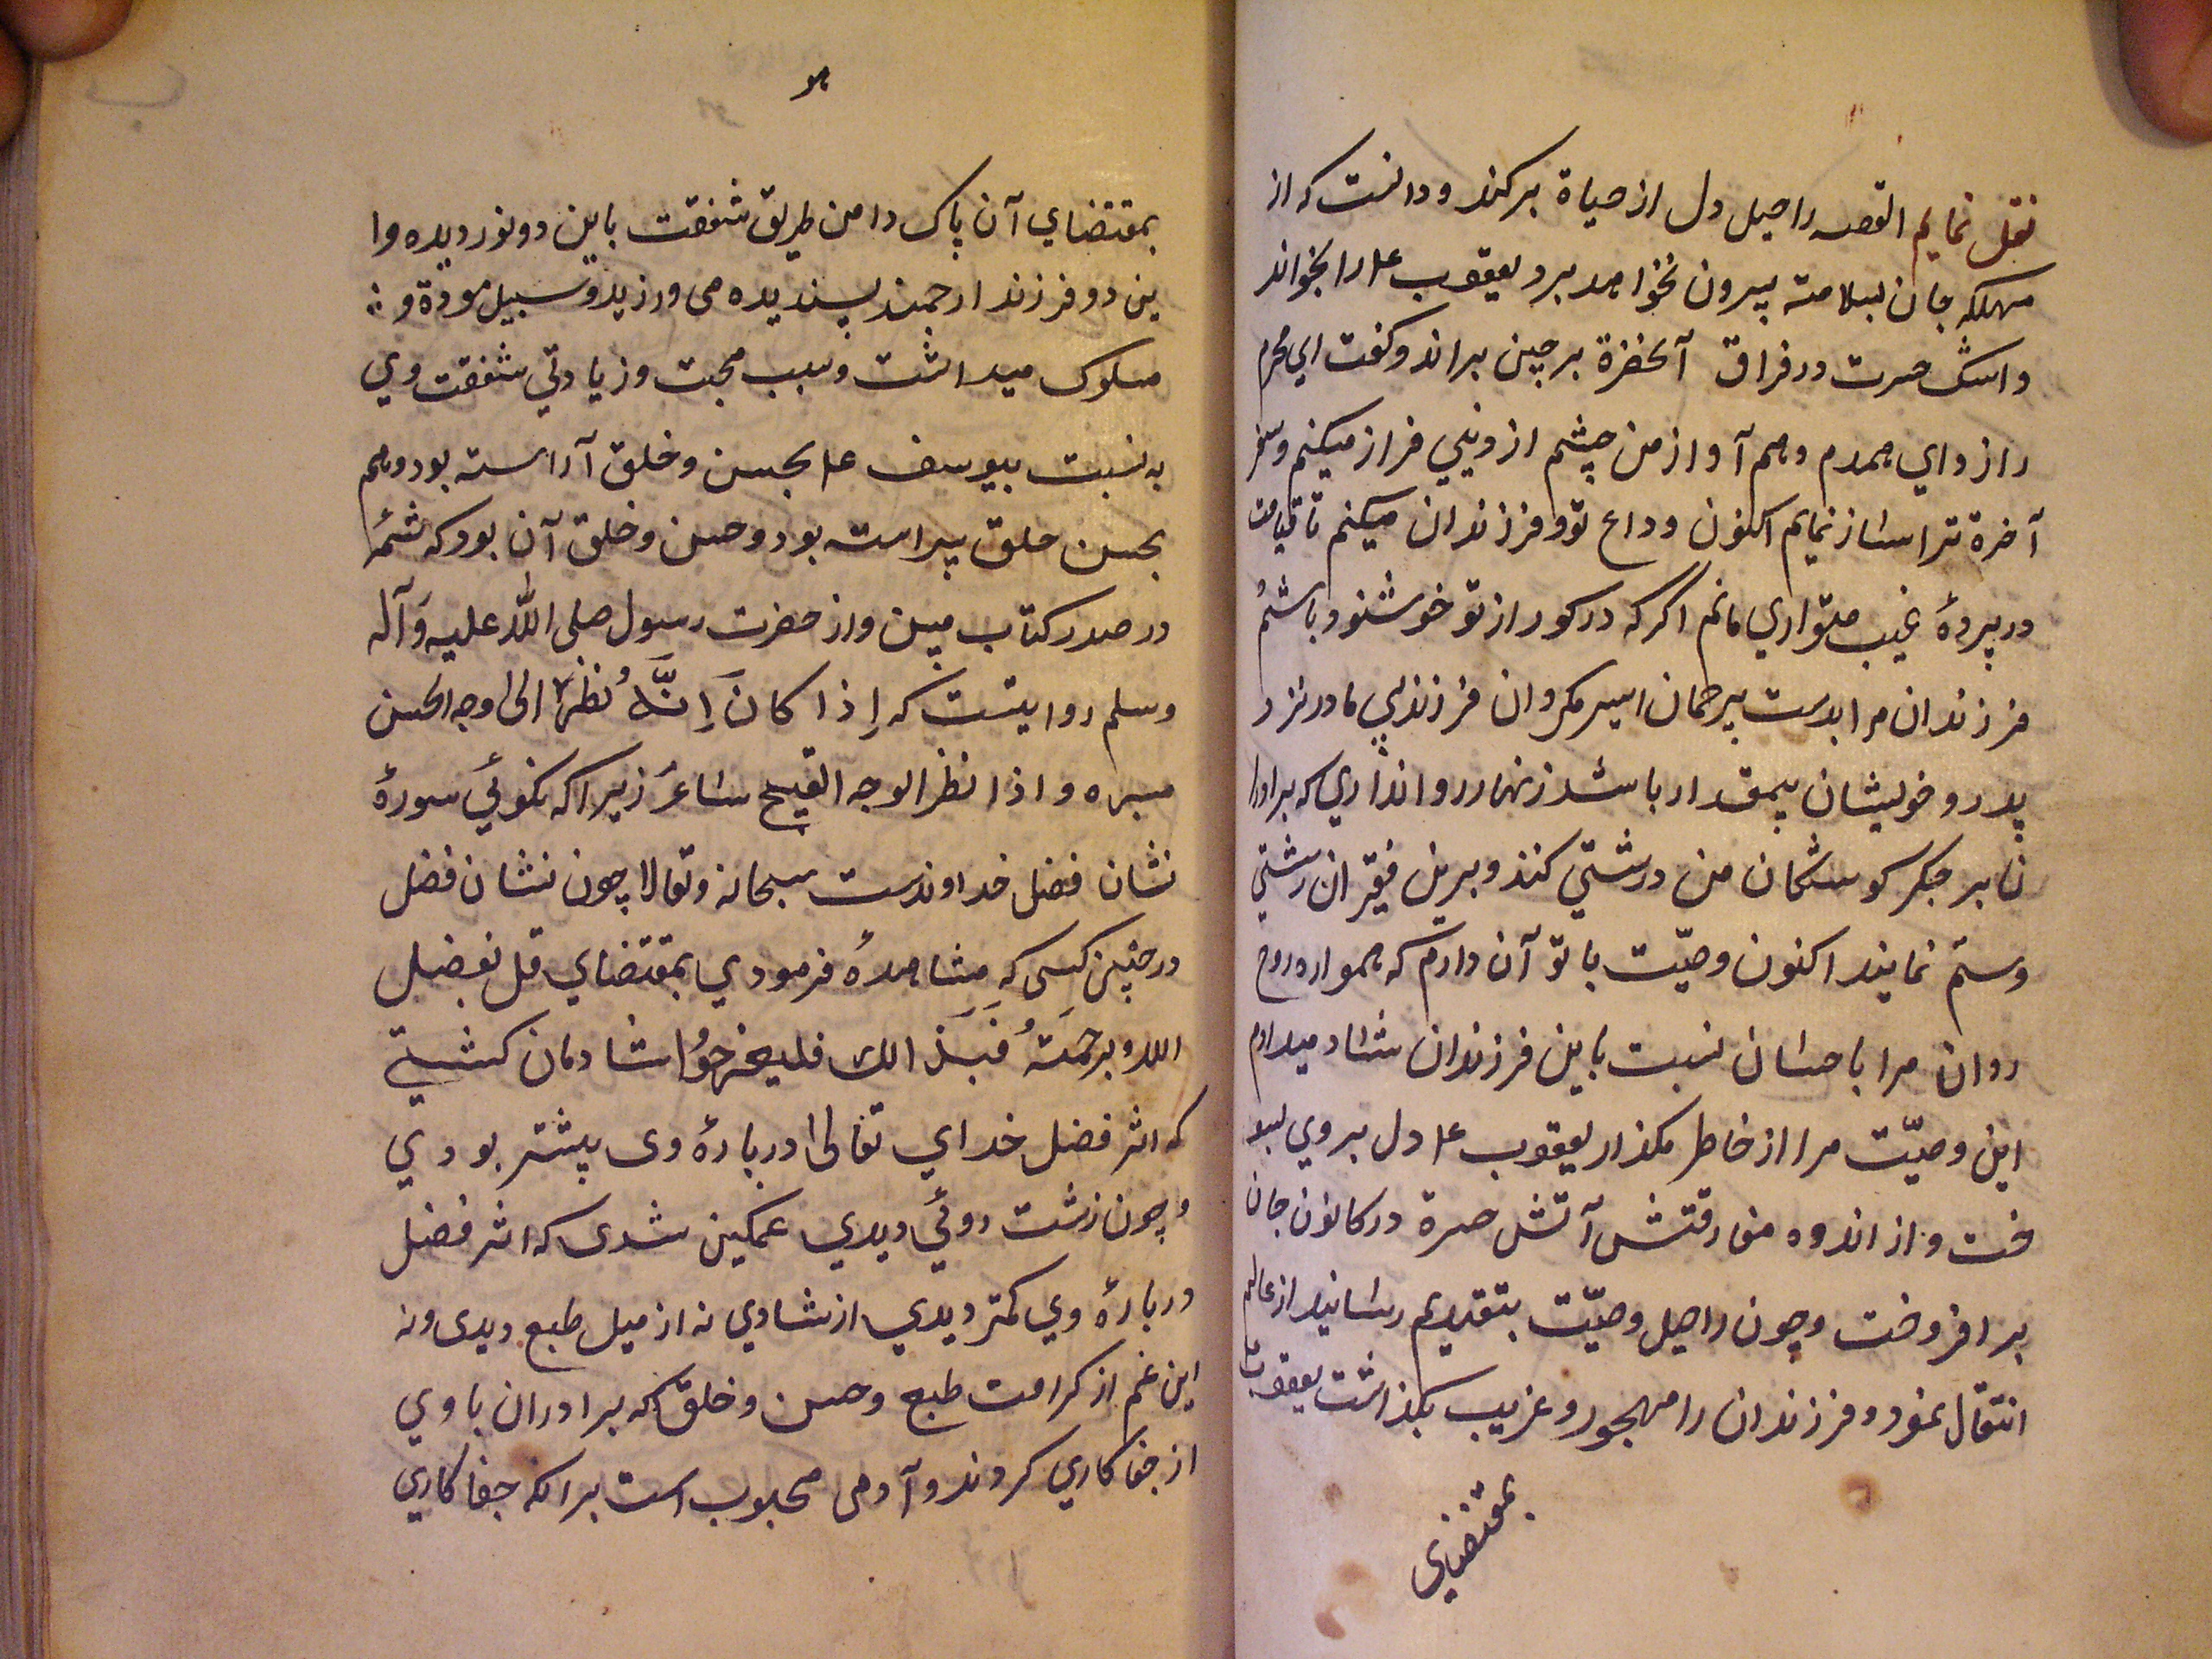 نقل نمایم القصه راحیل دل از حیاة برکند و دانست که از
مهلکه جان بسلامته بیرون نخواهد برد یعقوب ع‍ل را بخواند
و اشک حسرت در فراق آنحضرة بر جبین براند و کفت اي محرم
راز و اي همدم و هم آواز من چشم از دنیي فراز میکنم و سفر
آخرة ترا ساز نمایم اکنون وداع تو و فرزندان میکنم تا قیامت
در پردهٔ غیب متواري مانم اکر که در کور از تو خوشنود باشم
فرزندان مرا بدست بیرحمان اسیر مکردان فرزند بي مادر نزد
پدر و خویشان بیمقدار باشد زنهار روا نداري که برادرا
ن بر جکر کوشکان من درشتي کنند و برین فقیران رشتي
و ستم نمایند اکنون وصیّت با تو آن دارم که همواره روح
روان مرا باحسان نسبت باین فرزندان شاد میدارم
این وصیّت مرا از خاطر مکذار یعقوب ع‍ل دل بر وي بسو
خت و از اندوه مفارقتش آتش حسرة در کانون جان
برافروخت و چون راحیل وصیّت بتقدیم رسانید از عالم
انتقال نمود و فرزندان را مهجور و غریب بکذاشت یعقوب
بمقتضاي
بمقتضاي آن پاک دامن طریق شفقت باین دو نور دیده و ا
ین دو فرزند ارجمند پسندیده می ورزید و سبیل مودة و
مسلوک میداشت و سبب محبت و زیادتي شفقت وي
به نسبت بیوسف ع‍ل بحسن و خلق آراسته بود و هم
بحسن خلق پیراسته بود و حسن و خلق آن بود که شمهٔ
در صدر کتاب مبین و از حضرت رسول صلی الله علیه وَآله
وسلم روایتست که إذا کانَ إنَّهُ نظر الی وجه الحسن
سره و اذا نظر الوجه القبیح ساءُ زیرا که نکوئي سورهٔ
نشان فضل خداوندست سبحانه و تعالا چون نشان فضل
در چنین کسی که مشاهدهٔ فرمودي بمقتضاي قل بفضل
الله و برحمته فبذالك فلیفرحوُا شادمان کشتي
که اثر فضل خداي تعالی دربارهٔ وی بیشتر بودي
و چون زشت روئي دیدي غمکین شدی که اثر فضل
دربارهٔ وي کمتر دیدي از شادي نه از میل طبع دیدی و نه
این غم از کرامت طبع و حسن و خلق که برادران با وي
از جفا کاري کردند و آدمی محبوب است برانکه جفا کاري